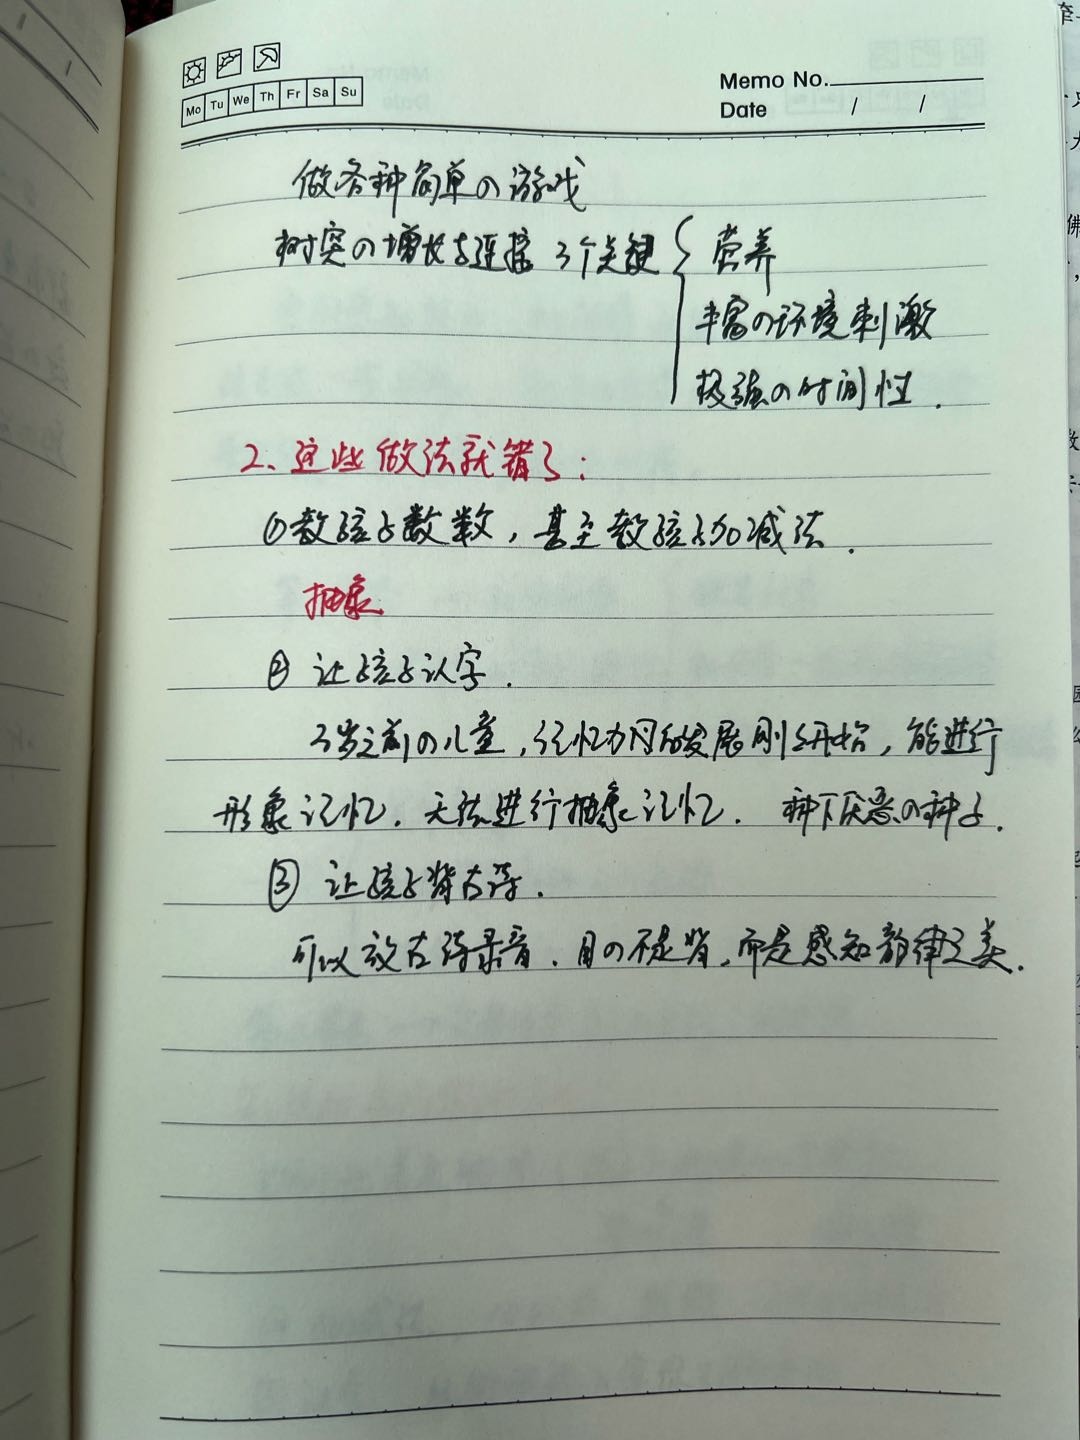 Mo Tu We Th Fr Sa Su
Memo No.
Date / /
做各种简单の游戏
树突の增长与连接 3个关键 { 营养
丰富の环境刺激
极强の时间性.
2、这些做法就错了:
①教孩子数数,甚至教孩子加减法.
抽象
② 让孩子认字.
3岁之前の儿童,记忆力网的发展刚刚开始,能进行
形象记忆.无法进行抽象记忆. 种下厌恶の种子.
③ 让孩子背古诗.
可以放古诗录音.目の不是背,而是感知韵律之美.